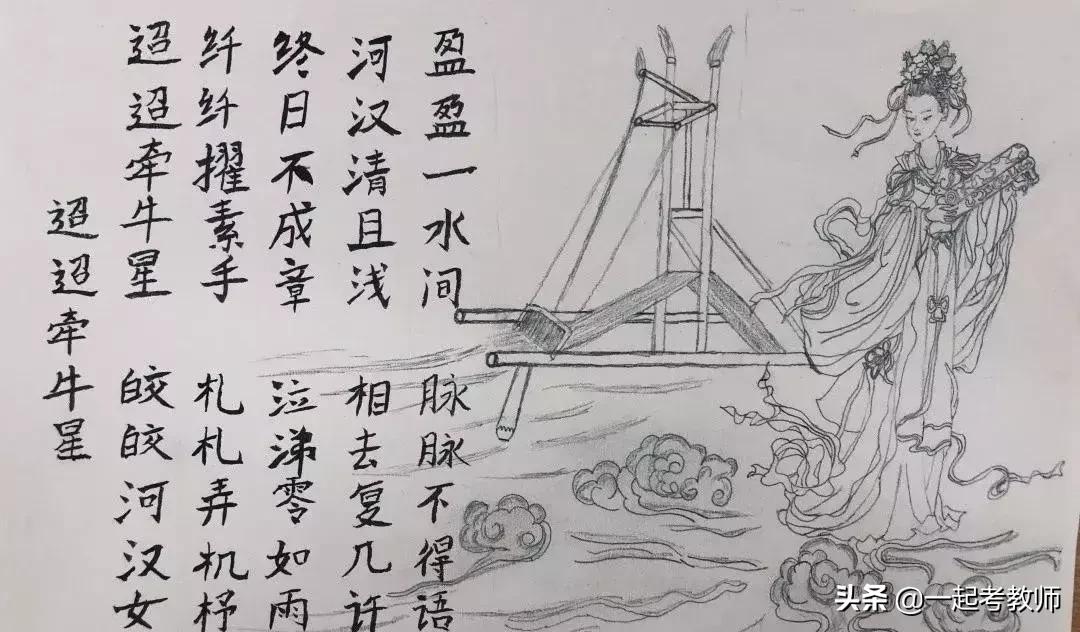 迢迢牵牛星
迢迢牵牛星 皎皎河汉女
纤纤擢素手 札札弄机杼
终日不成章 泣涕零如雨
河汉清且浅 相去复几许
盈盈一水间 脉脉不得语
头条 @一起考教师